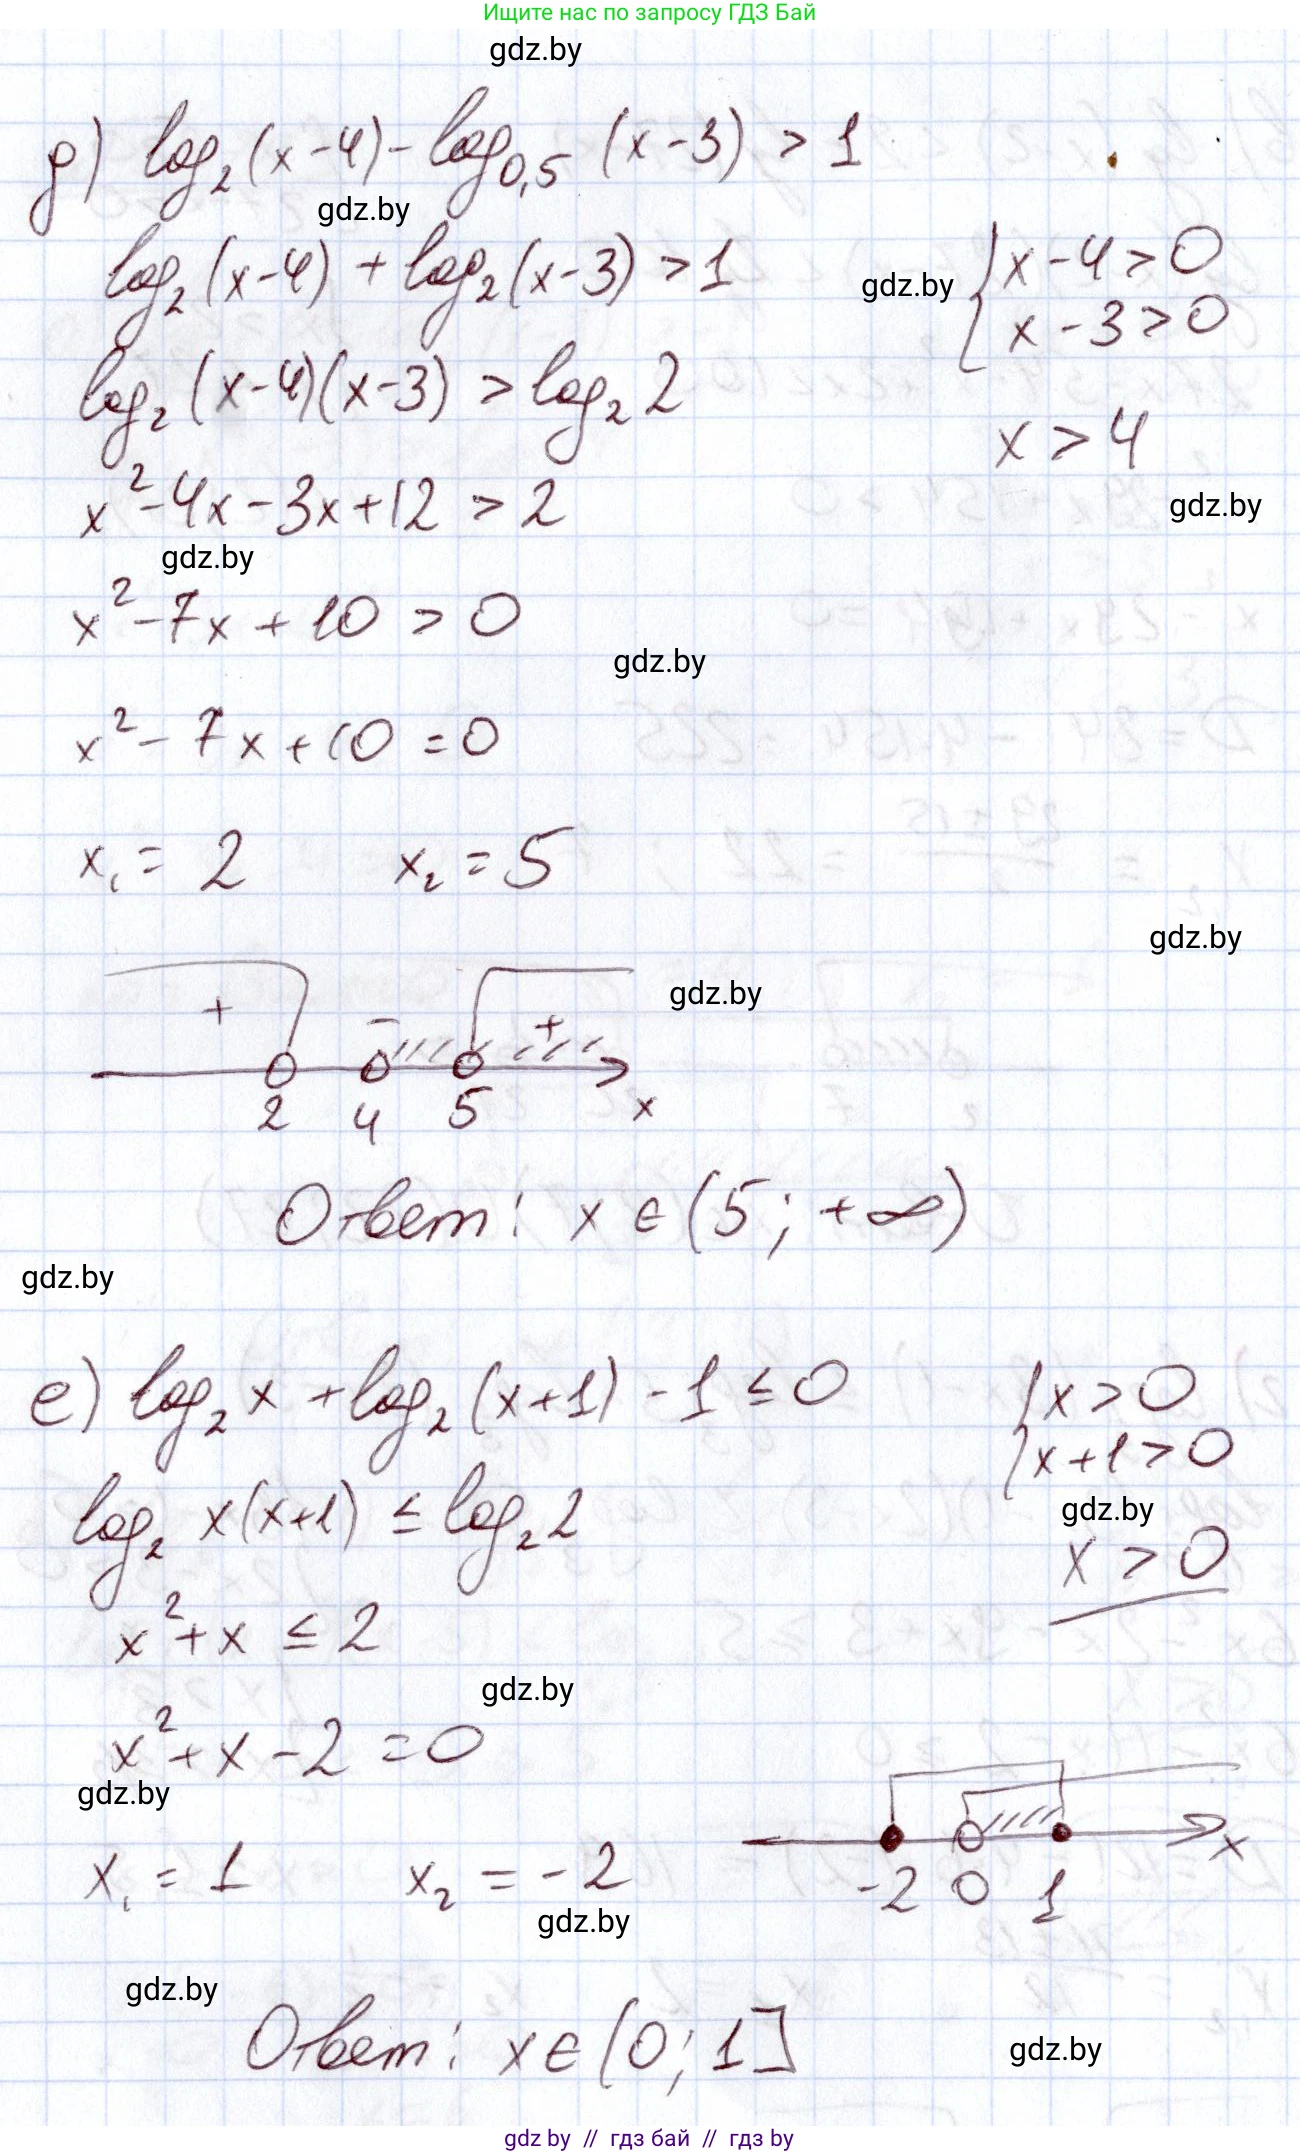 Ищите нас по запросу ГДЗ Бай
gdz.by
д) log₂(x-4) - log₀,₅ (x-3) > 1
gdz.by
log₂(x-4) + log₂(x-3) > 1
gdz.by
{ x-4>0
x-3>0
log₂(x-4)(x-3) > log₂ 2
x > 4
x²-4x-3x+12 > 2
gdz.by
gdz.by
x²-7x+10 > 0
gdz.by
x²-7x+10=0
x₁ = 2 x₂ = 5
gdz.by
gdz.by
+ - +
2 4 5 x
Ответ: x ∈ (5; +∞)
gdz.by
е) log₂ x + log₂(x+1) - 1 ≤ 0
{ x > 0
x+1>0
log₂ x(x+1) ≤ log₂ 2
gdz.by
x > 0
x²+x ≤ 2
gdz.by
x²+x-2=0
gdz.by
x₁ = 1 x₂ = -2
-2 0 1 x
gdz.by
gdz.by
Ответ: x ∈ (0; 1]
gdz.by
gdz by // гдз бай // гдз by